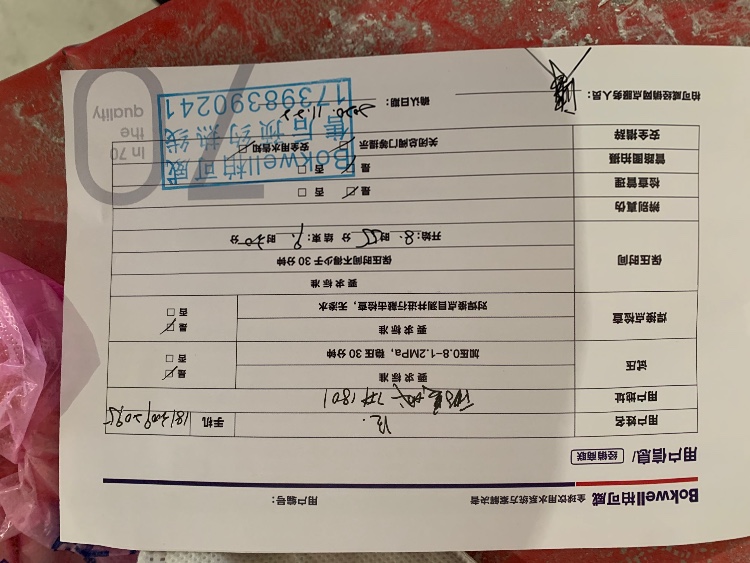 Bokwell柏可威 全球饮用水系统方案解决者 用户编号：
用户信息/ 经销商联
用户姓名 手机
用户地址 1801
试压 要求标准 ☑是
加压0.8-1.2MPa，稳压30分钟 □否
焊接点检查 要求标准 ☑是
对焊接点目测并进行敲击检查，无渗水 □否
保压时间 要求标准
保压时间不得少于30分钟
开始：8.时55分 结束：9.时20分
辨别真伪
检查管理 ☑是 □否
管路图拍摄 ☑是 □否
安全措辞 关闭总阀门等提示 ☑安全用水告知
柏可威经销网点服务人员： 确认日期：2020.11.22
Bokwell柏可威
售后预约热线
17398390241
In 70
the
quality
70